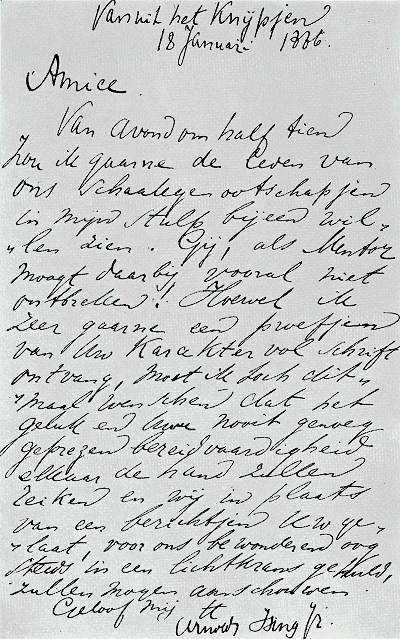 Vanuit het Knijpjen
18 Januari 1886.
Amice
Van avond om half tien
zou ik gaarne de leden van
ons schaakgenootschapjen
in mijn stulp bijeen wil„
„len zien. Gij, als Mentor
moogt daarbij vooral niet
ontbreken! Hoewel ik
zeer gaarne een proefjen
van Uw Karaktervol schrift
ontvang, moet ik toch dit„
„maal wenschen dat het
geluk en Uwe nooit genoeg
geprezen bereidvaardigheid
elkaar de hand zullen
reiken en wij in plaats
van een berichtjen Uw ge„
„laat, voor ons bewonderend oog
steeds in een lichtkrans gehuld,
zullen mogen aanschouwen.
Geloof mij tt
Arnold Ising Jr.